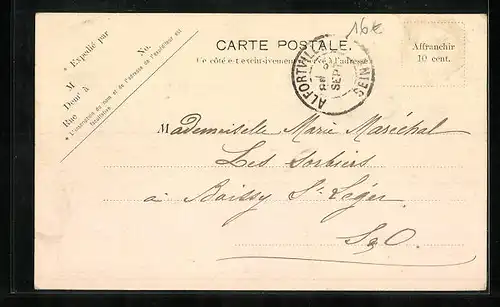 16€
CARTE POSTALE.
Ce côté est exclusivement réservé à l'adresse
Affranchir
10 cent.
* Expédié par
M
No.
Demt à
Rue
* L'indication du nom et de l'adresse de l'expéditeur est
facultative.
ALFORTVILLE
SEPT
SEINE
Mademoiselle Marie Maréchal
Les Sorbiers
à Boissy St-Léger
S&O.